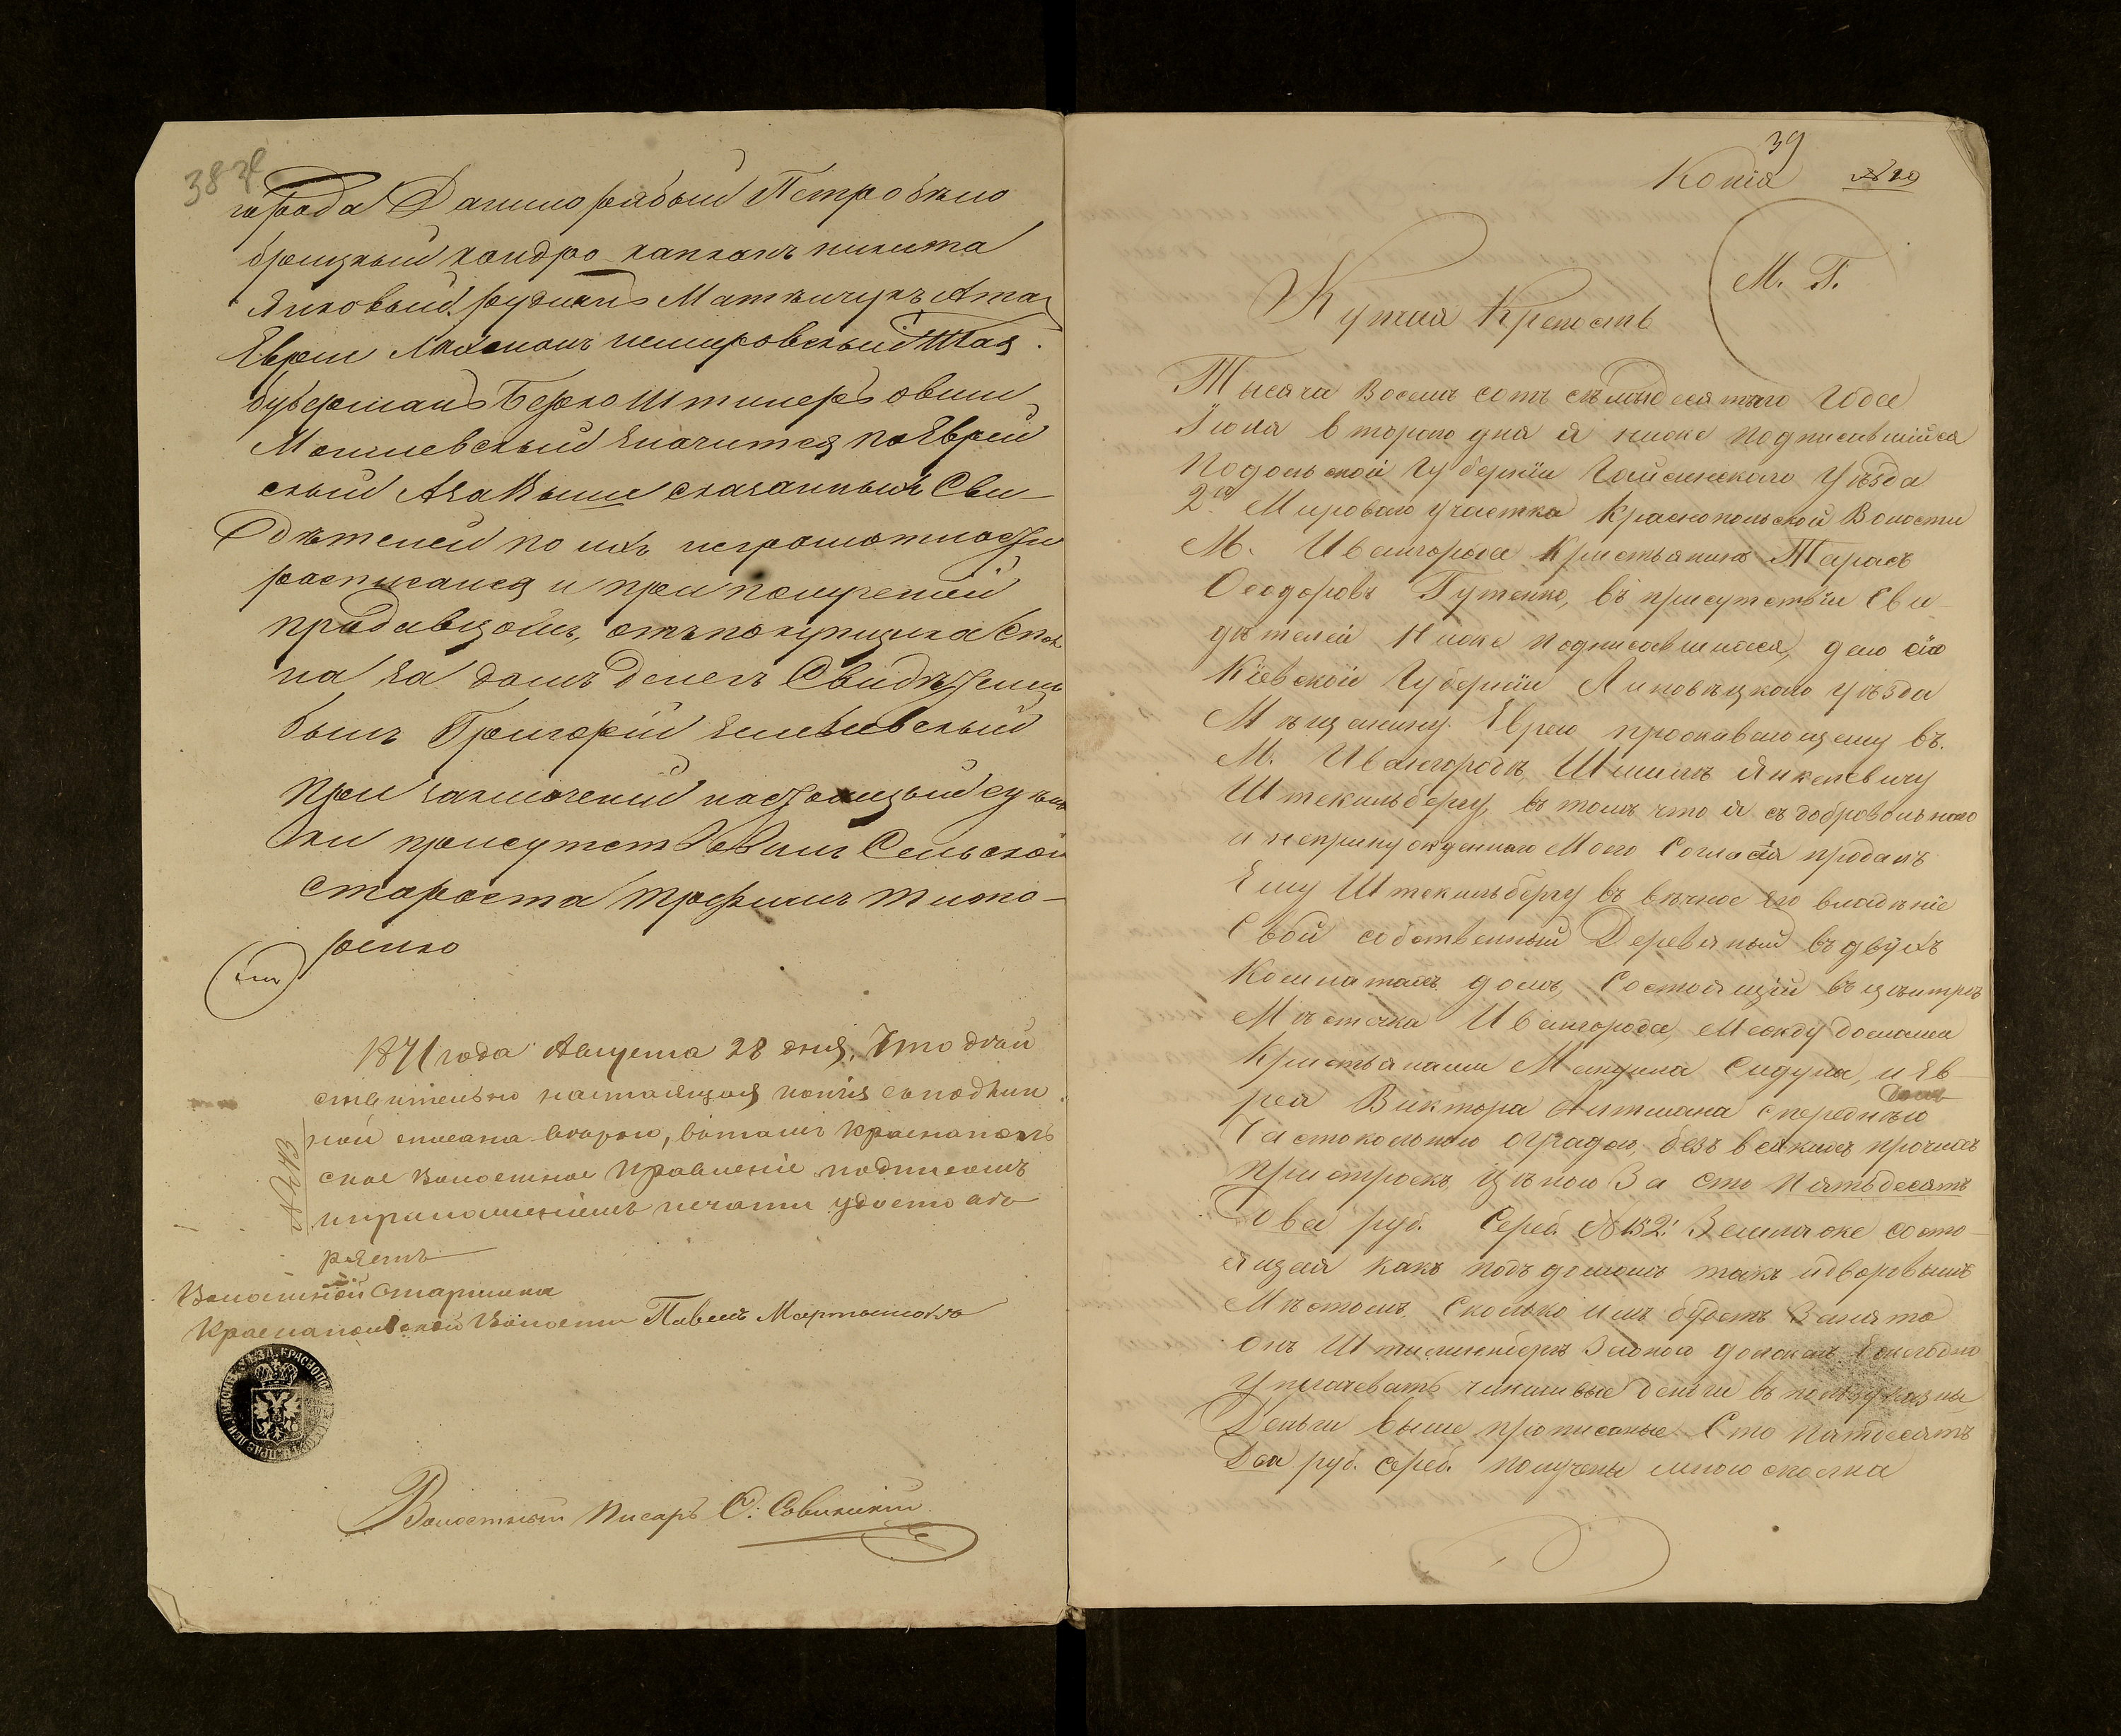 38
города Данило рябый Петро бѣло
брицкый кондро капканъ никита
Янковый рудикъ Маткичукъ А та
Евреи немировскый
буберманъ Берко Штилеръ овши
Могилевскый значится по Еврей
скый А за Выше сказанныхъ Сви
Дѣтелей по ихъ неграмотности
расписался и при получении
продавцомъ, отъ покупщика Спол
на за домъ Денегъ Свидѣтелемъ
былъ Григорій
При заключении настоящый
присутствовалъ Сельской
староста трофимъ тимо-
шенко
1871 года Августа 28 дня, Что дѣй
ствительно настоящая копія съ подлин
ной списана вѣрно, вътомъ Краснополь
ское Волостное Правленіе подписомъ
и приложеніемъ печати удостовѣ
ряетъ
№ 243
Волостной Старшина
Краснопольской Волости Павелъ Мартынюкъ
Волостный Писаръ С. Савинскій
39
Копія №29
М. П.
Купчая Крепость
Тысяча Восемъ сотъ съмьдесятаго Года
Іюня второго дня я ниже подписавшійся
Подольской Губерніи Гайсинского Уѣзда
2го Мироваго участка Краснопольской Волости
М. Ивангорода Кристьянинъ Тарасъ
Феодоровъ Гутенко, въ присутствіи Сви
дѣтелей Ниже подписавшихся, даю сію
Кіевской Губерніи Липовецкого уѣзда
Мѣщанину Еврею проживающему въ
М. Ивангородѣ Шмилъ Янкелевичу
Штекильбергу, въ томъ что я съ добровольного
и непринужденнаго Моего Согласія продалъ
Ему Штекильбергу въ вѣчное Его владѣніе
Свой собственный Деревяный въ двухъ
Комнатахъ домъ, Состоящій въ центрѣ
Мѣстечка Ивангорода, Между домами
Кристьянами Сидуна, и Ев
рея Виктора спереднею
Частокольною оградою, безъ всякихъ прочихъ
пристроекъ, Цѣною За Сто Пятьдесятъ
Два руб. Сереб. №152. Земля же состо
ящая какъ подъ домомъ такъ идворовымъ
Мѣстомъ, Сколько имъ будетъ Занято
онъ долженъ Ежегодно
уплачевать чиншовые Деньги въ пользу казны
Деньги Выше прописаные Сто Пятдесятъ
Два руб. Сереб. получены мною сполна